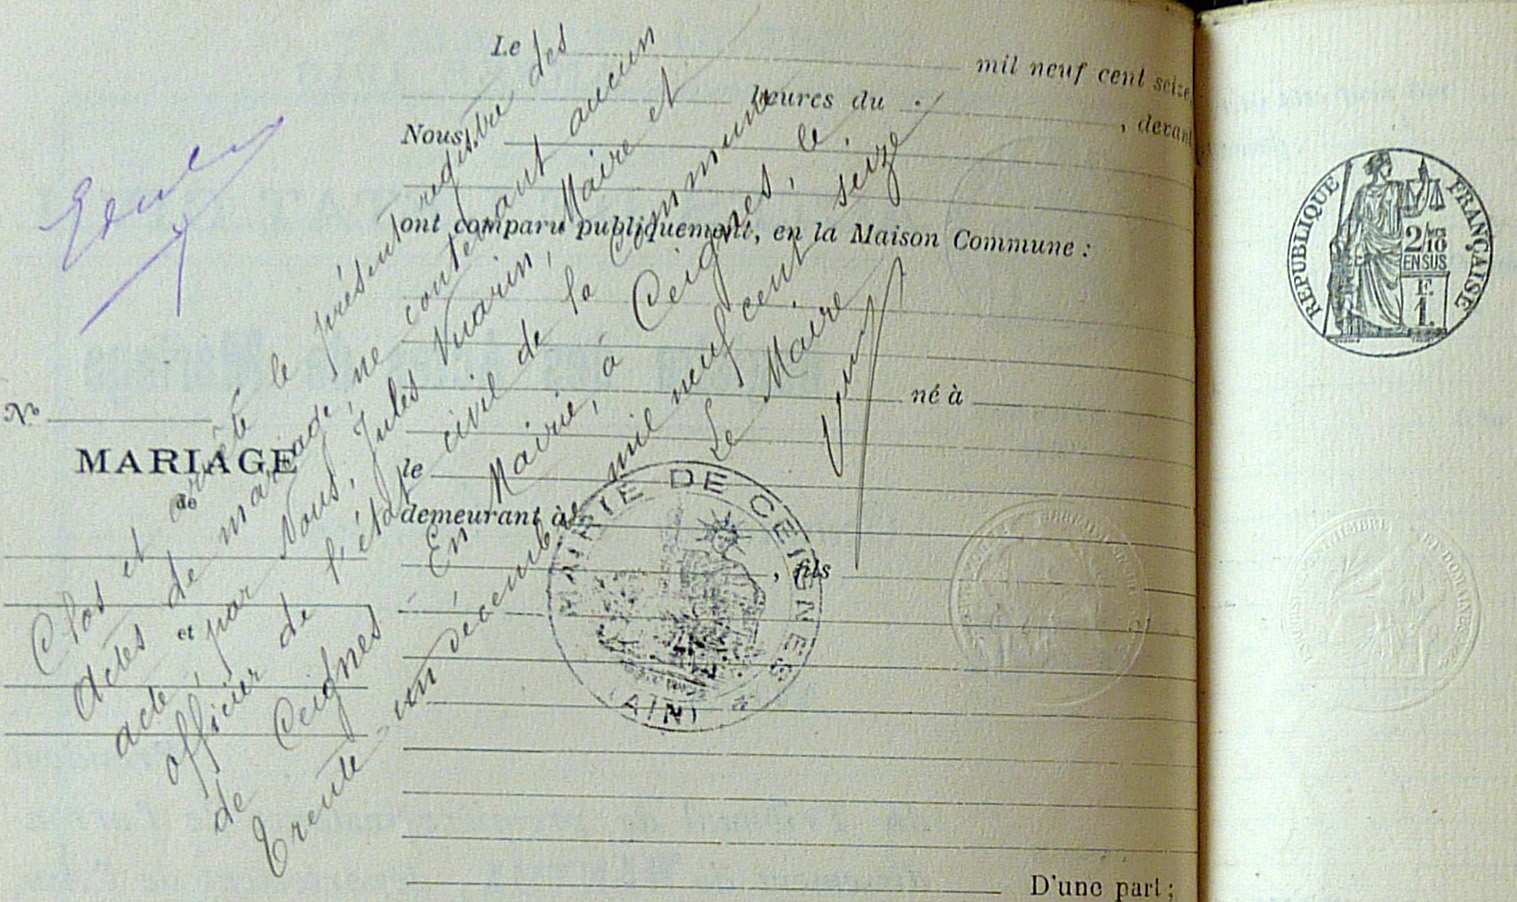 Le mil neuf cent seize,
heures du , devant
Nous,
ont comparu publiquement, en la Maison Commune :
né à
le
demeurant à
, fils
D'une part ;
No
MARIAGE
de
et
Clos et arrêté le présent registre des
actes de mariage, ne contenant aucun
acte, par Nous, Jules Vuarin, Maire et
officier de l'état civil de la Commune
de Ceignes En Mairie, à Ceignes, le
trente-un décembre mil neuf cent seize
Le Maire
MAIRIE DE CEIGNES
(AIN)
RÉPUBLIQUE FRANÇAISE
2/10
EN SUS
F.
1.